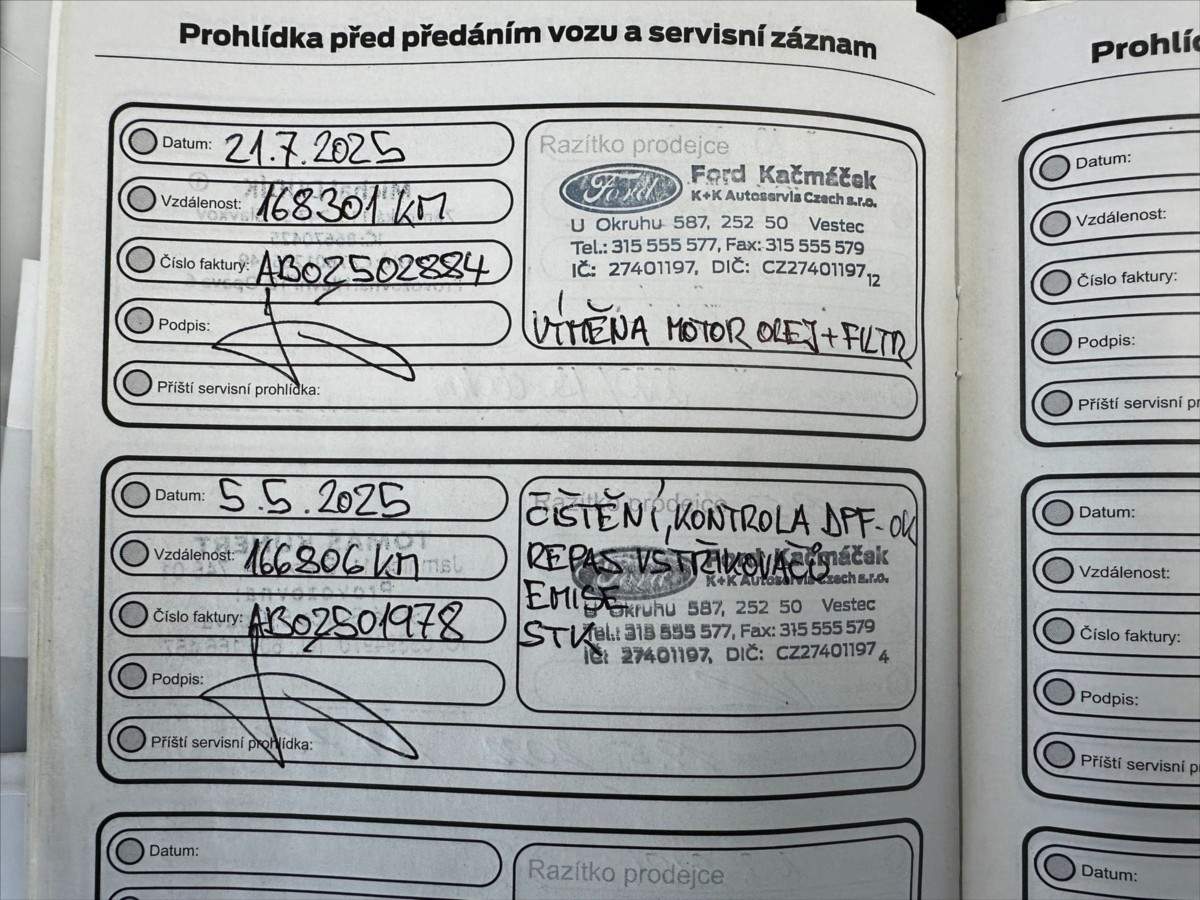 Prohlídka před předáním vozu a servisní záznam
Datum: 21.7.2025
Vzdálenost: 168301 KM
Číslo faktury: AB02502884
Podpis:
Příští servisní prohlídka:
Razítko prodejce
Ford
Ford Kačmáček
K+K Autoservis Czech s.r.o.
U Okruhu 587, 252 50 Vestec
Tel.: 315 555 577, Fax: 315 555 579
IČ: 27401197, DIČ: CZ27401197 12
VÝMĚNA MOTOR OLEJ + FILTR
Datum: 5.5.2025
Vzdálenost: 166806 KM
Číslo faktury: AB02501978
Podpis:
Příští servisní prohlídka:
Razítko prodejce
ČIŠTĚNÍ, KONTROLA DPF - OK
REPAS VSTŘIKOVAČŮ
EMISE
STK
Ford Kačmáček
K+K Autoservis Czech s.r.o.
U Okruhu 587, 252 50 Vestec
Tel.: 315 555 577, Fax: 315 555 579
IČ: 27401197, DIČ: CZ27401197 4
Datum:
Razítko prodejce
Prohlíd
Datum:
Vzdálenost:
Číslo faktury:
Podpis:
Příští servisní p
Datum:
Vzdálenost:
Číslo faktury:
Podpis:
Příští servisní p
Datum: